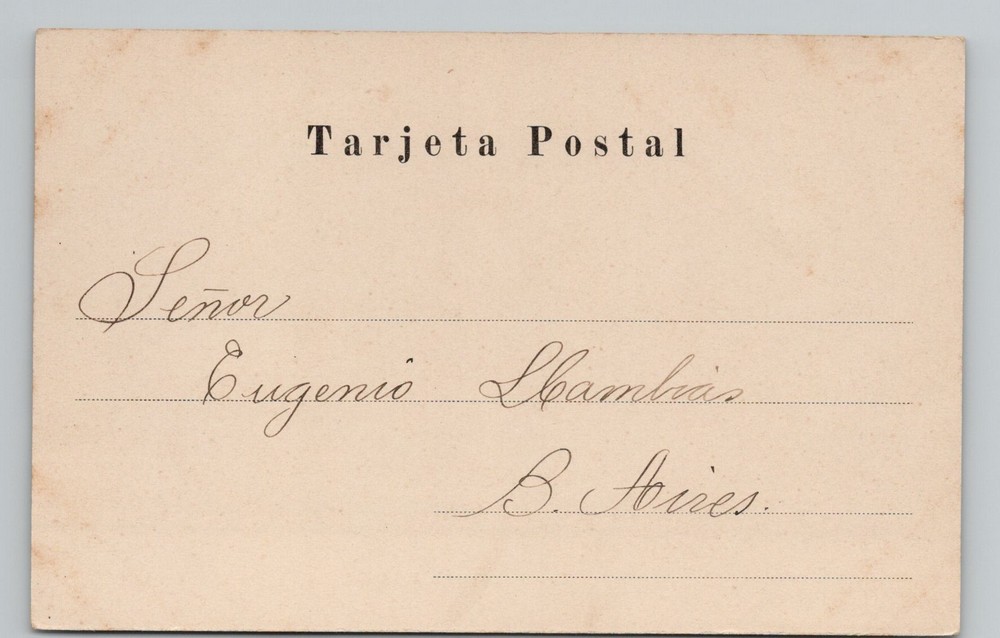 Tarjeta Postal
Señor
Eugenio Llambias
B. Aires.